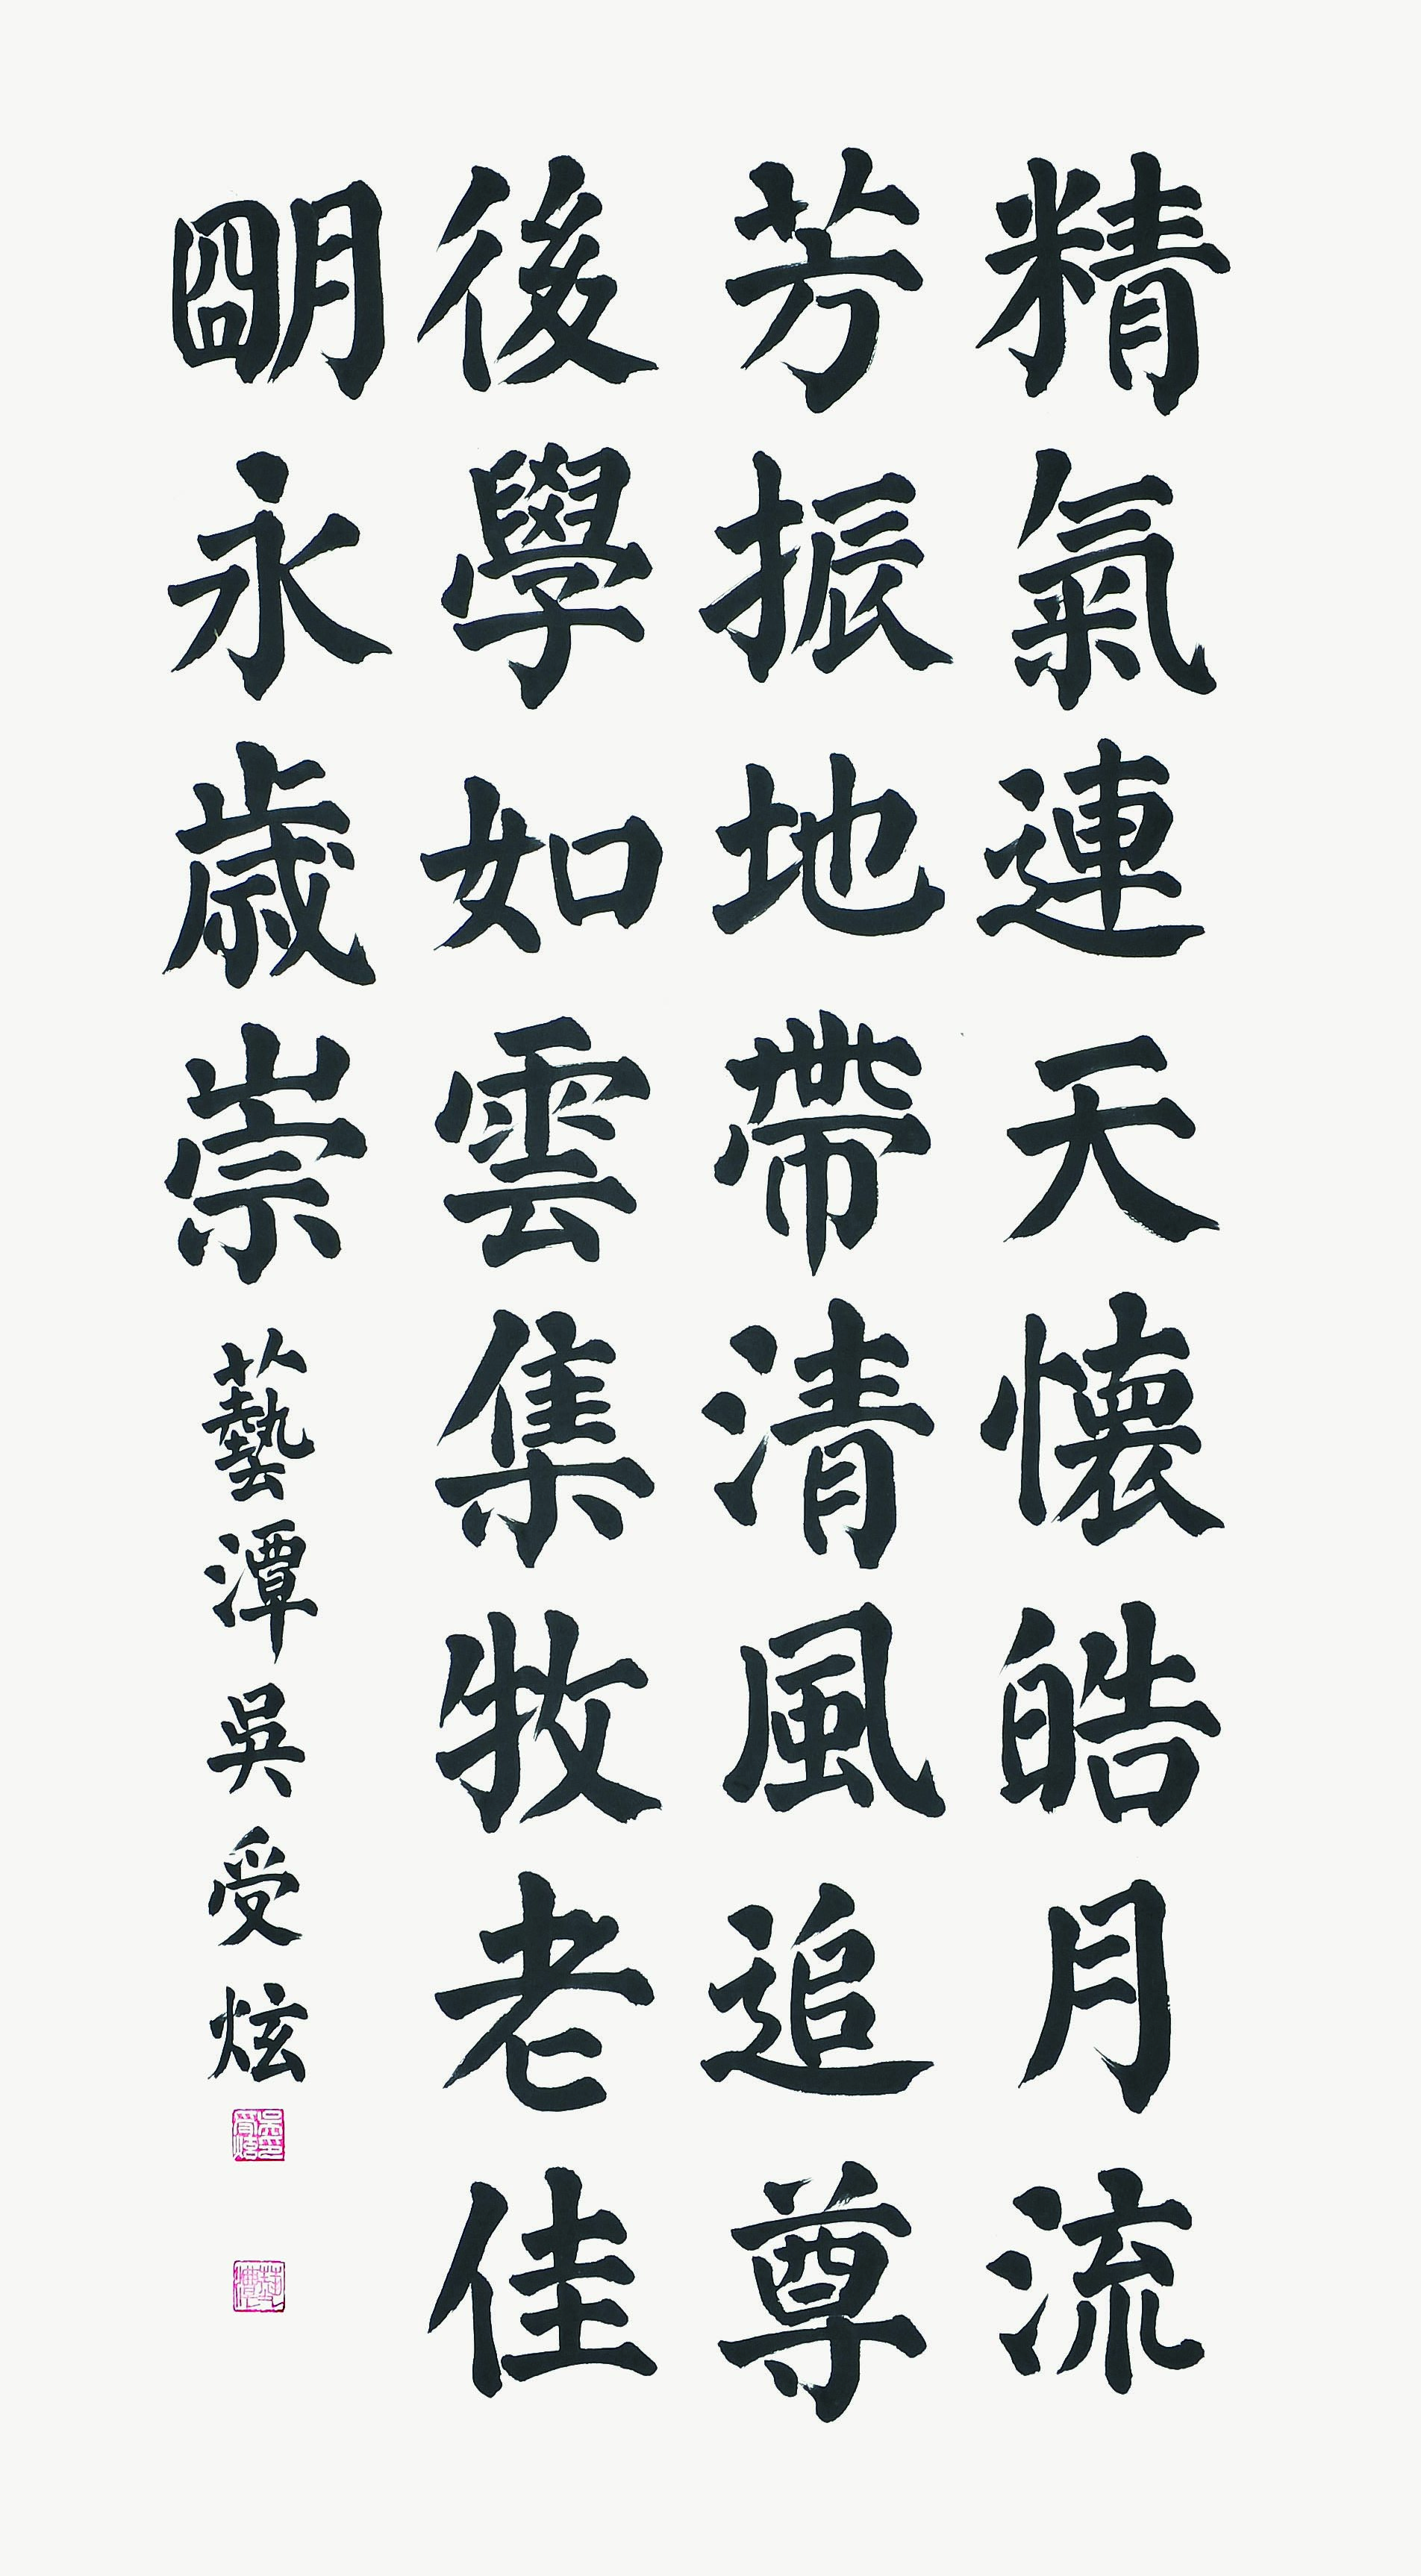 精氣連天懷皓月流
芳振地帶清風追尊
後學如雲集牧老佳
朙永歳崇藝潭吳受炫